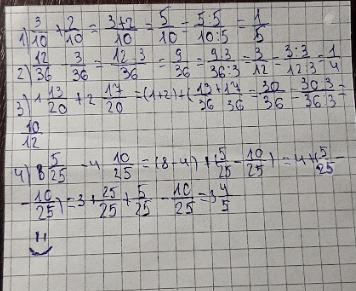 1) 3/10 + 2/10 = 3+2/10 = 5/10 = 5:5/10:5 = 1/5
2) 12/36 - 3/36 = 12-3/36 = 9/36 = 9:3/36:3 = 3/12 = 3:3/12:3 = 1/4
3) 1 13/20 + 2 17/20 = (1+2)+(13+17/36 36 = 30/36 = 30:3/36:3 =
10/12
4) 8 5/25 - 4 10/25 = (8-4)+(5/25 - 10/25) = 4+(5/25 -
- 10/25) = 3 + 25/25 + 5/25 - 10/25 = 3 4/5